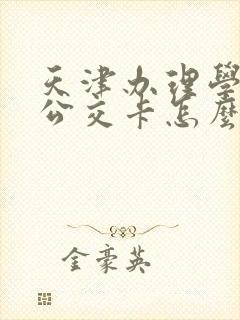 天津办理學
公交卡怎麼
金豪英